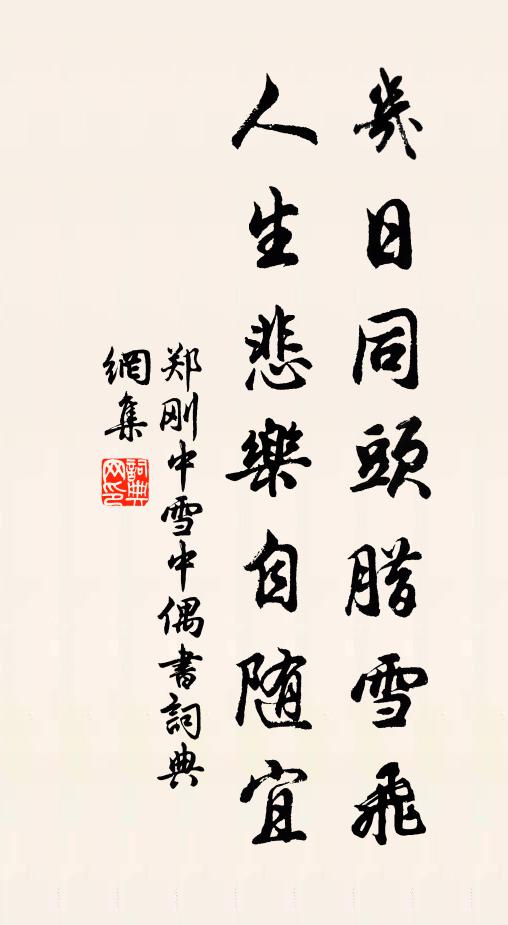 几日同頭腊雪飛
人生悲樂自随宜
郑刚中雪中偶書詞典
網集
詞典
网印